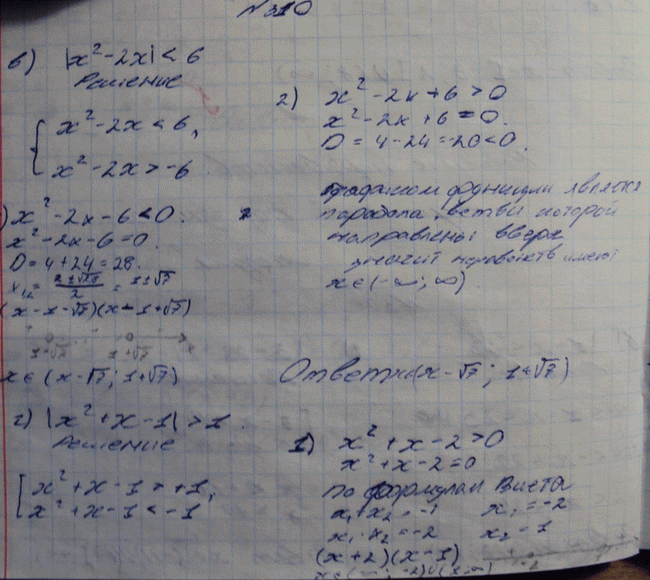 N310
в) |x²-2x|<6
Решение
{ x²-2x<6,
x²-2x>-6
1) x²-2x-6<0.
x²-2x-6=0.
D=4+24=28.
x₁,₂= (2±√28)/2 = 1±√7
(x-1-√7)(x-1+√7)
1-√7 1+√7 x
x∈(x-√7; 1+√7)
2) x²-2x+6>0
x²-2x+6=0.
D=4-24=-20<0.
графиком функции является
парабола, ветви которой
направлены вверх
значит неравенств имеет
x∈(-∞;∞).
Ответ: x∈(x-√7; 1+√7)
г) |x²+x-1|>1.
Решение
[ x²+x-1>+1,
x²+x-1<-1
1) x²+x-2>0
x²+x-2=0
по формулам Виета
x₁+x₂=-1 x₁=-2
x₁·x₂=-2 x₂=1
(x+2)(x-1)